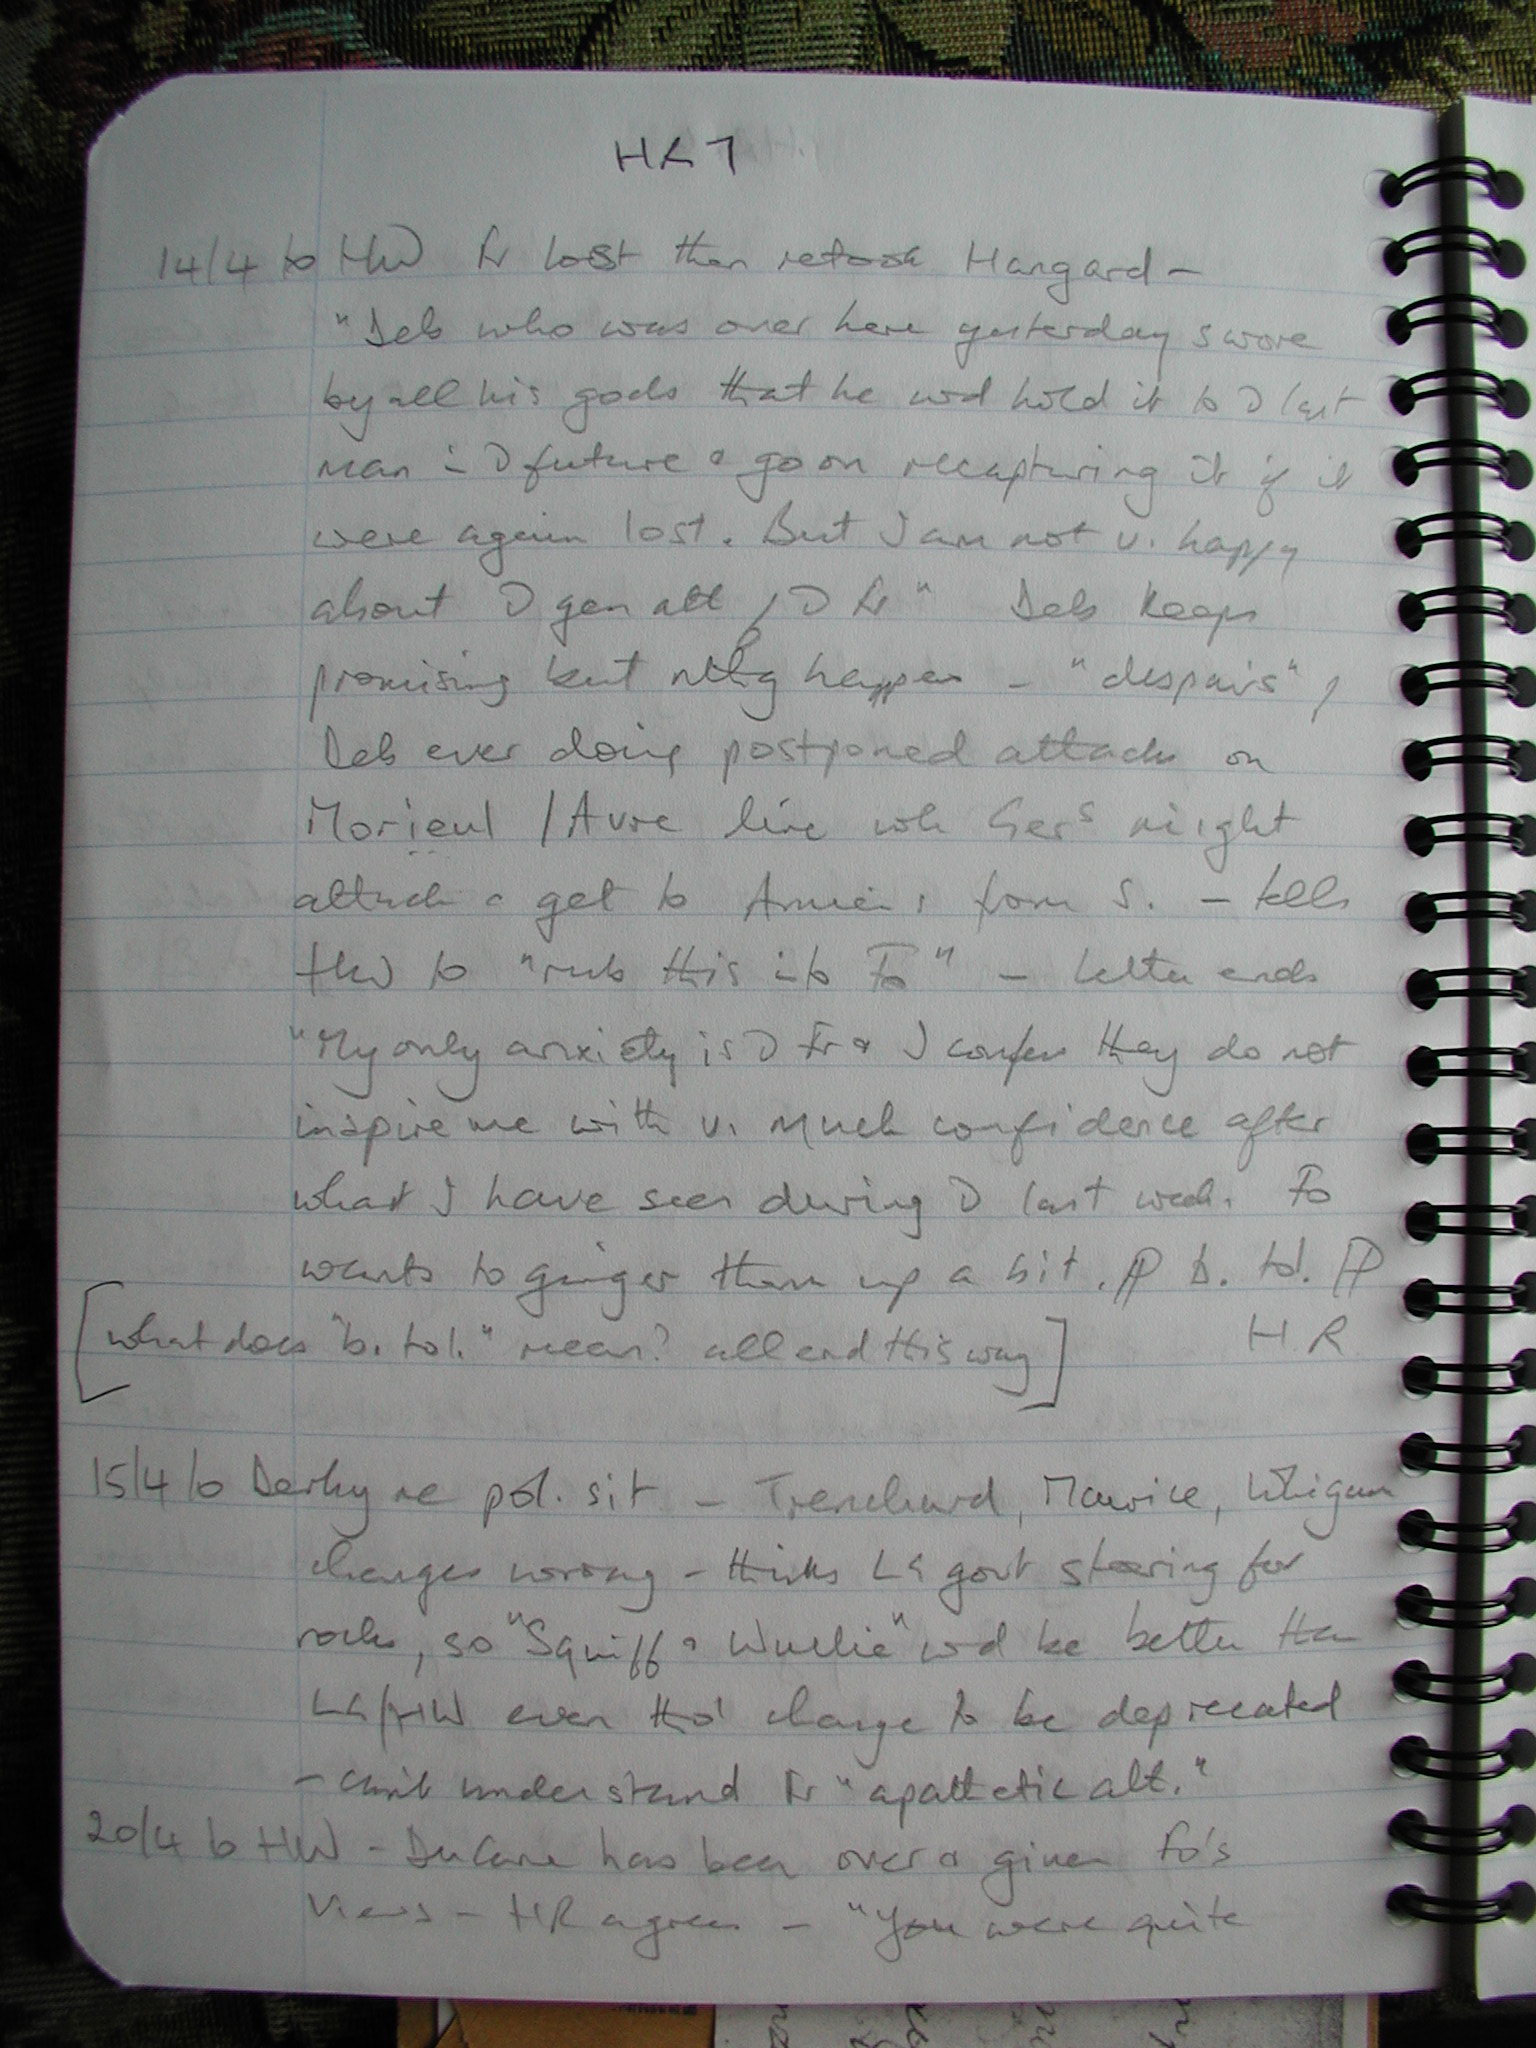 HR 7
14/4 to HW Fr lost then retook Hangard -
"Deb who was over here yesterday swore
by all his gods that he wd hold it to D last
man in D future & go on recapturing it if it
were again lost. But I am not v. happy
about D gen att of D Fr" Deb keeps
promising but nthg happens - "despairs" of
Deb ever doing postponed attacks on
Morieul / Avre line wh Gers might
attack & get to Amiens from S. - tells
HW to "rub this into Fo" - letter ends
"My only anxiety is D Fr & I confess they do not
inspire me with v. much confidence after
what I have seen during D last week. Fo
wants to ginger them up a bit. b. tol.
H.R.
[what does "b. tol." mean? all end this way]
15/4 to Derby re pol. sit - Trenchard, Maurice, Whigam
changes wrong - thinks LG govt steering for
rocks, so "Squiff & Wullie" wd be better than
LG/HW even tho' change to be deprecated
- can't understand Fr "apathetic att."
20/4 to HW - DuCane has been over & given Fo's
views - HR agrees - "You were quite